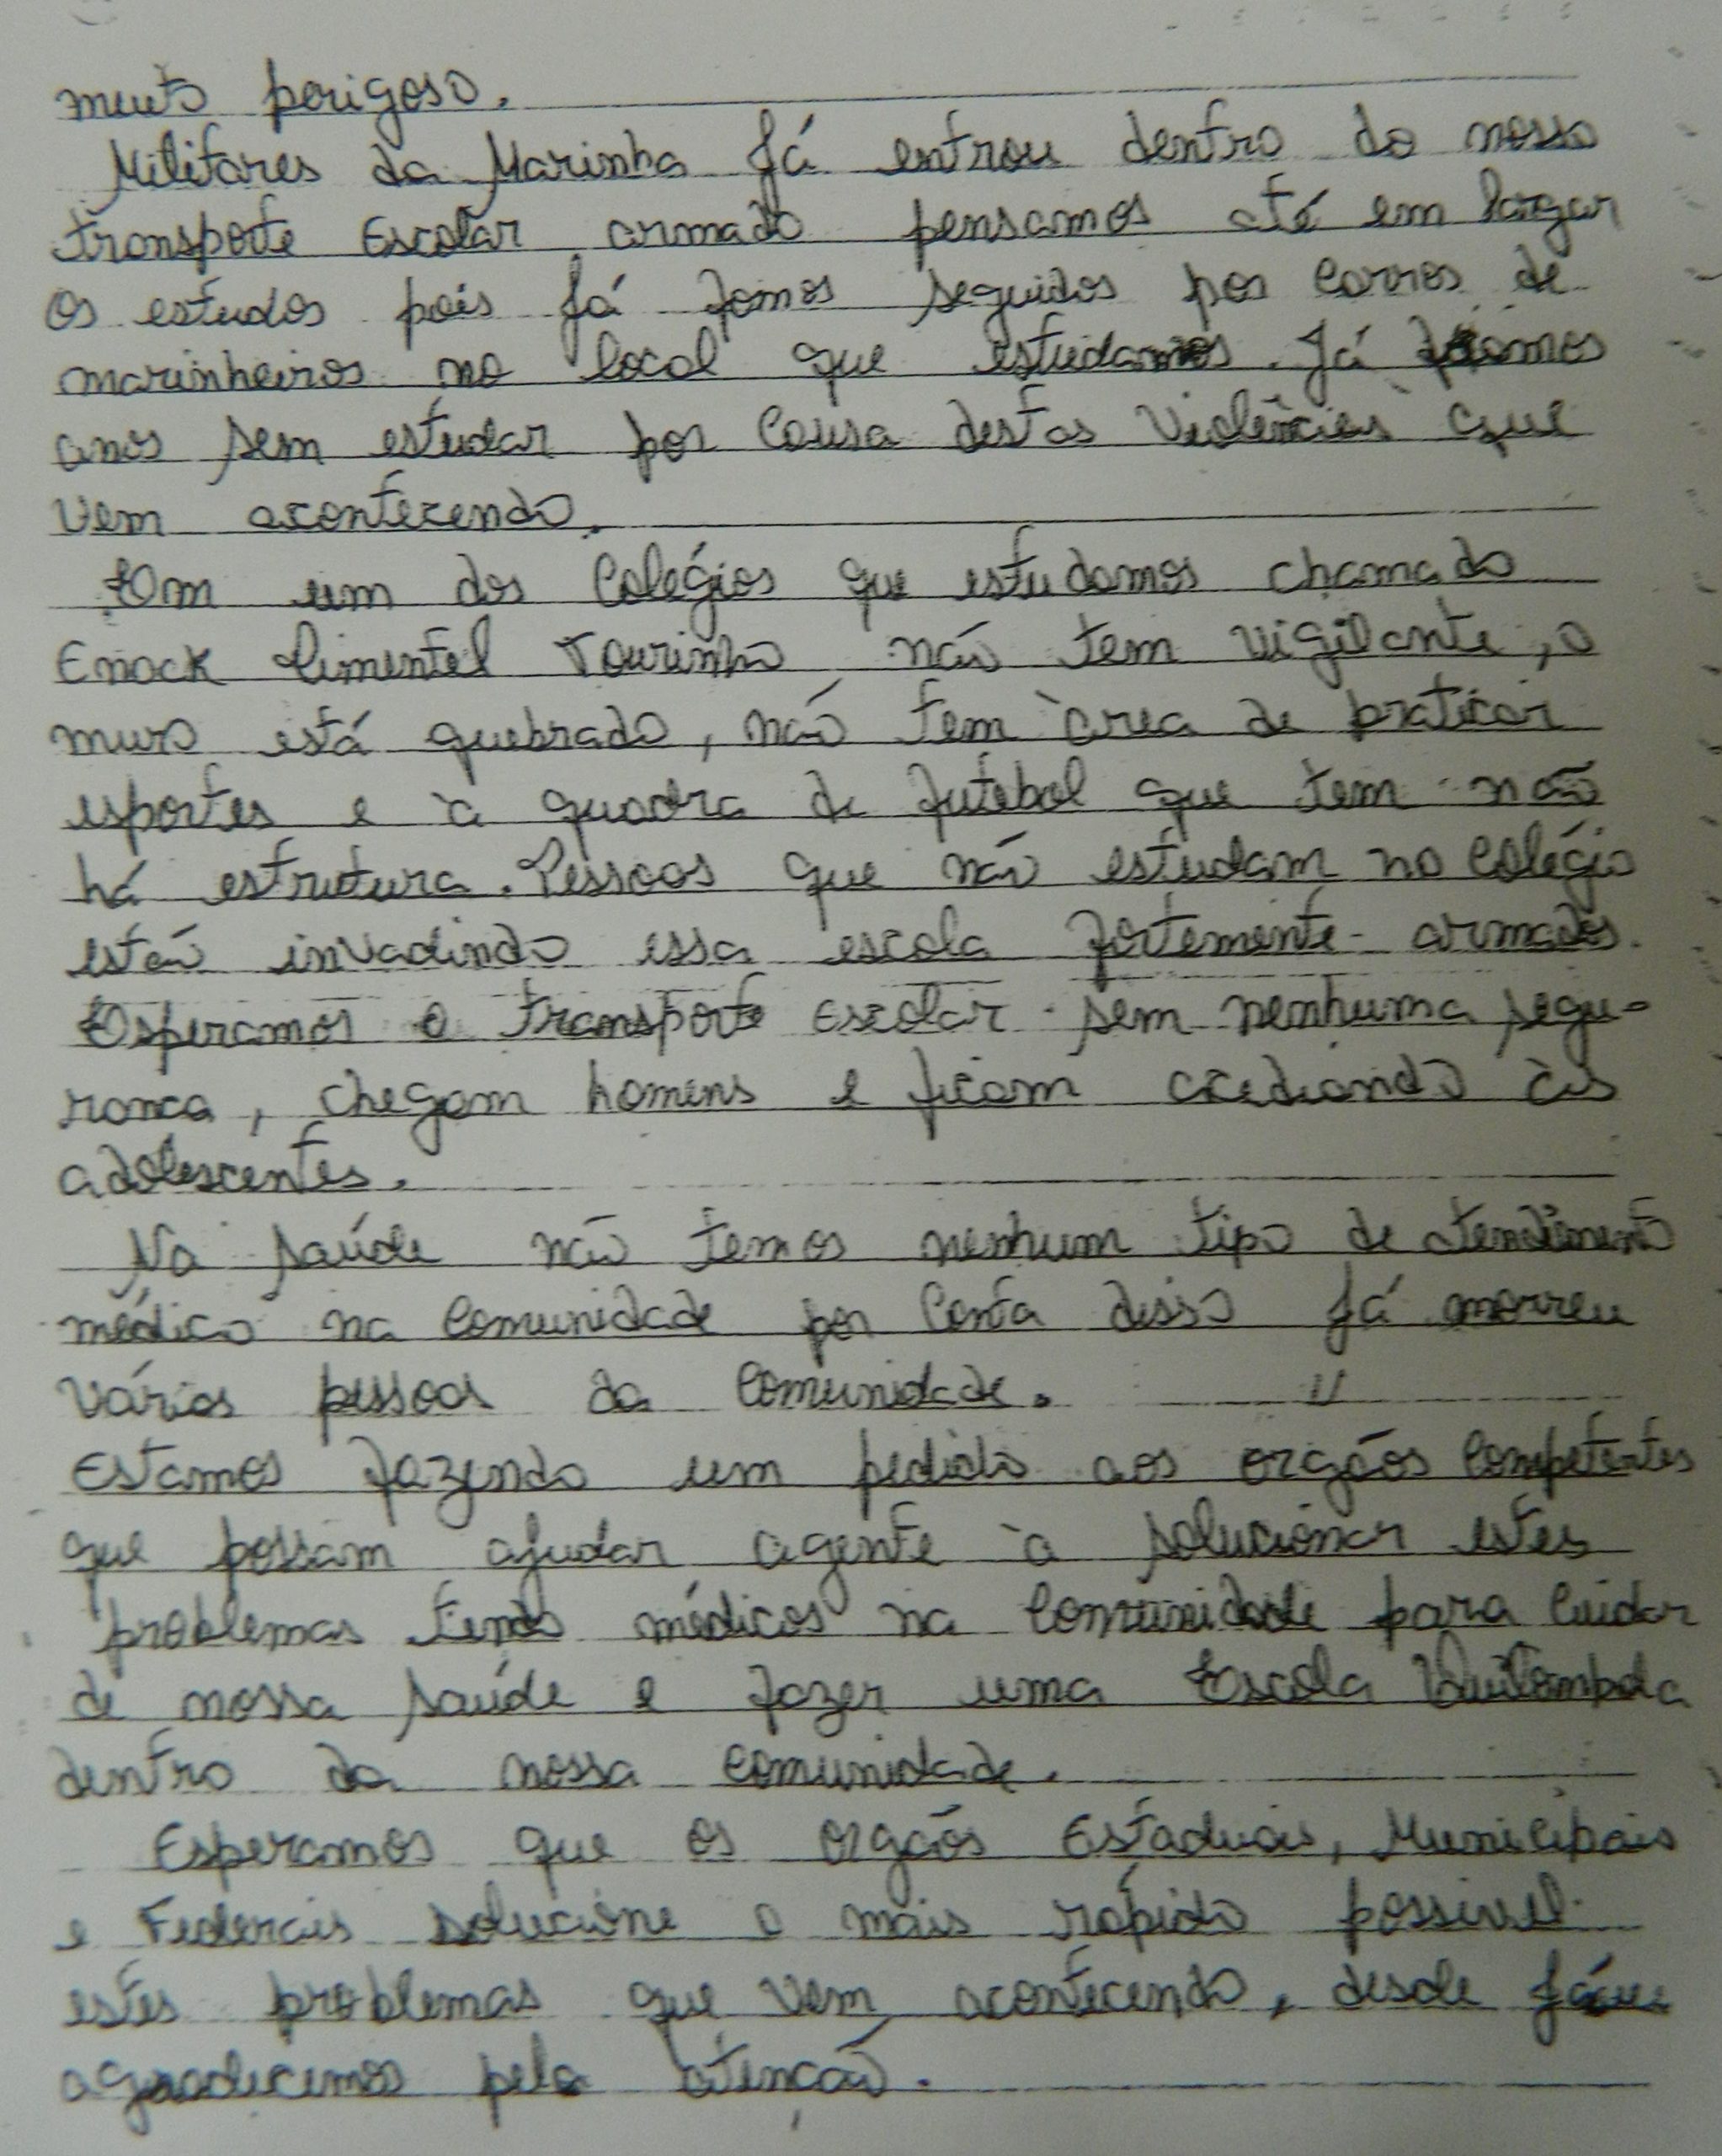 muito perigoso.
Militares da Marinha já entrou dentro do nosso
transporte Escolar armado pensamos até em largar
os estudos pois já fomos seguidos por carros de
marinheiros no local que estudamos. Já ficamos
anos sem estudar por causa destas violências que
vem acontecendo.
Em um dos Colégios que estudamos chamado
Enock Pimentel Tourinho não tem vigilante, o
muro está quebrado, não tem àrea de praticar
esportes e à quadra de futebol que tem não
há estrutura. Pessoas que não estudam no colégio
estão invadindo essa escola fortemente armados.
Esperamos o transporte Escolar sem nenhuma segu-
rança, chegam homens e ficam acediando às
adolescentes.
Na saúde não temos nenhum tipo de atendimento
médico na comunidade por conta disso já morreu
várias pessoas da comunidade.
Estamos fazendo um pedido aos orgãos competentes
que possam ajudar agente à solucionar estes
problemas tendo médicos na comunidade para cuidar
de nossa saúde e fazer uma Escola Quilombola
dentro da nossa comunidade.
Esperamos que os orgãos Estaduais, Municipais
e Federais solucione o mais rápido possivel
estes problemas que vem acontecendo, desde já
agradecemos pela atenção.